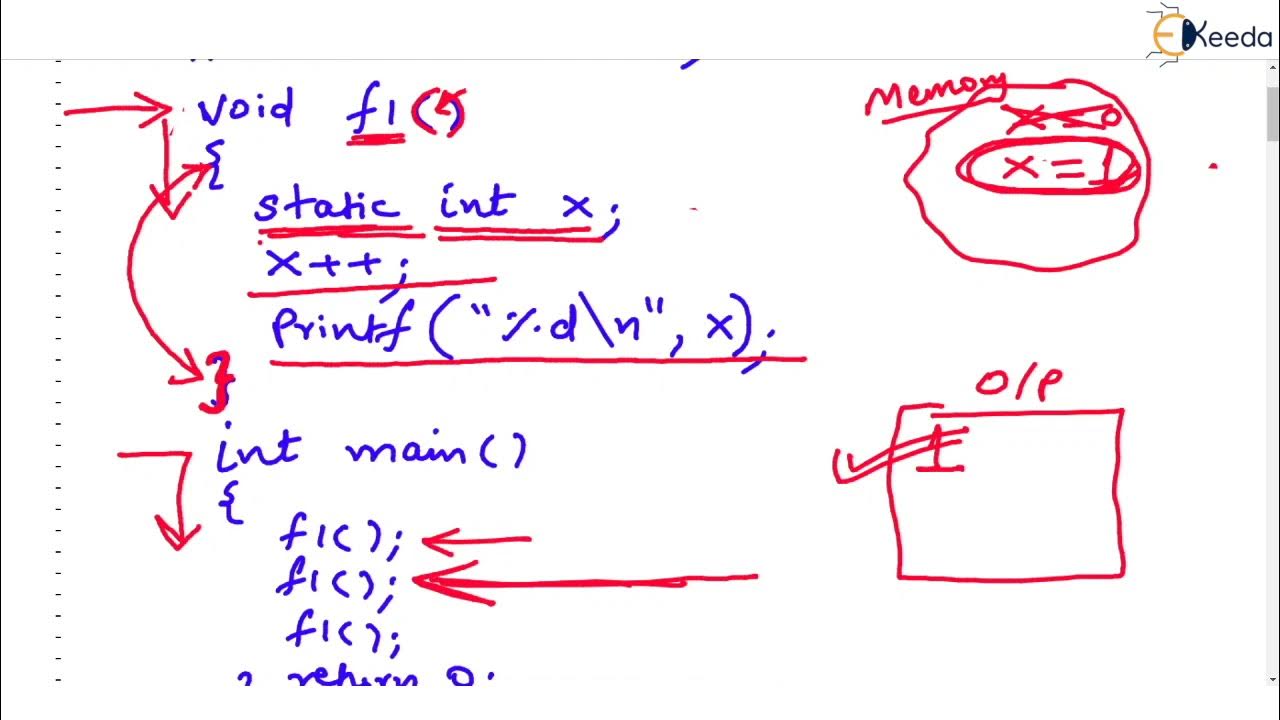 EKeeda
void f1()
{
static int x;
x++;
Printf("%d\n", x);
}
int main()
{
f1();
f1();
f1();
} return 0;
Memory
x=0
x=1
O/P
1